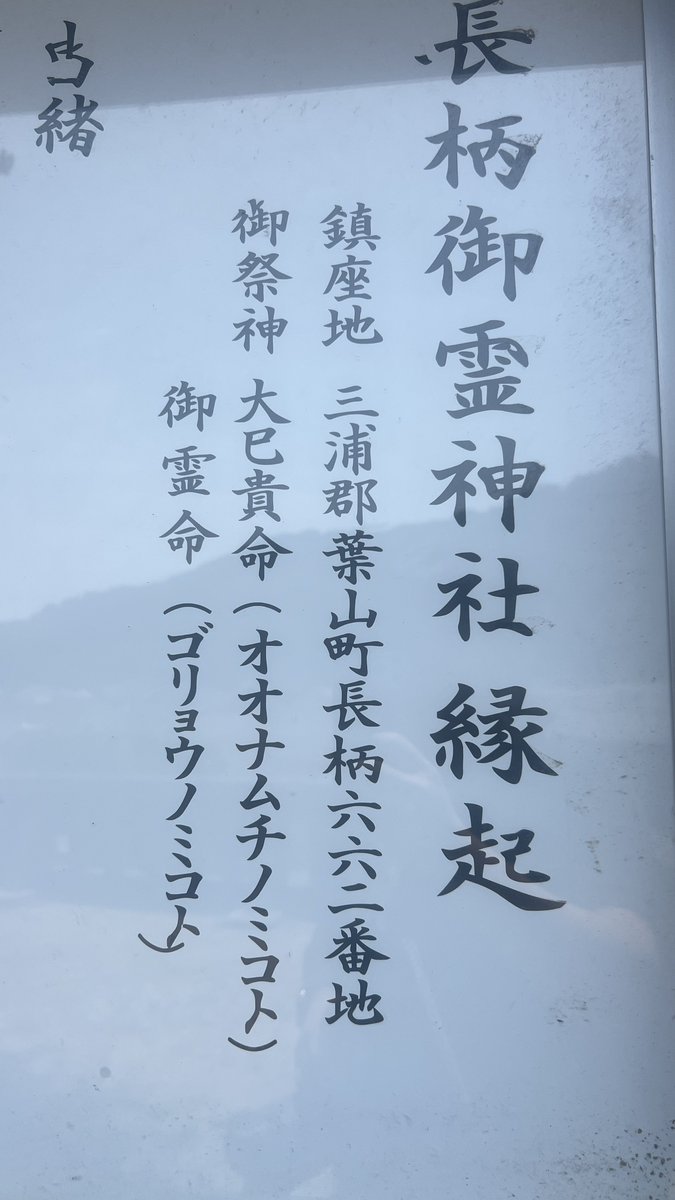 長柄御霊神社縁起
鎮座地 三浦郡葉山町長柄六六二番地
御祭神 大巳貴命（オオナムチノミコト）
御霊命（ゴリョウノミコト）
由緒